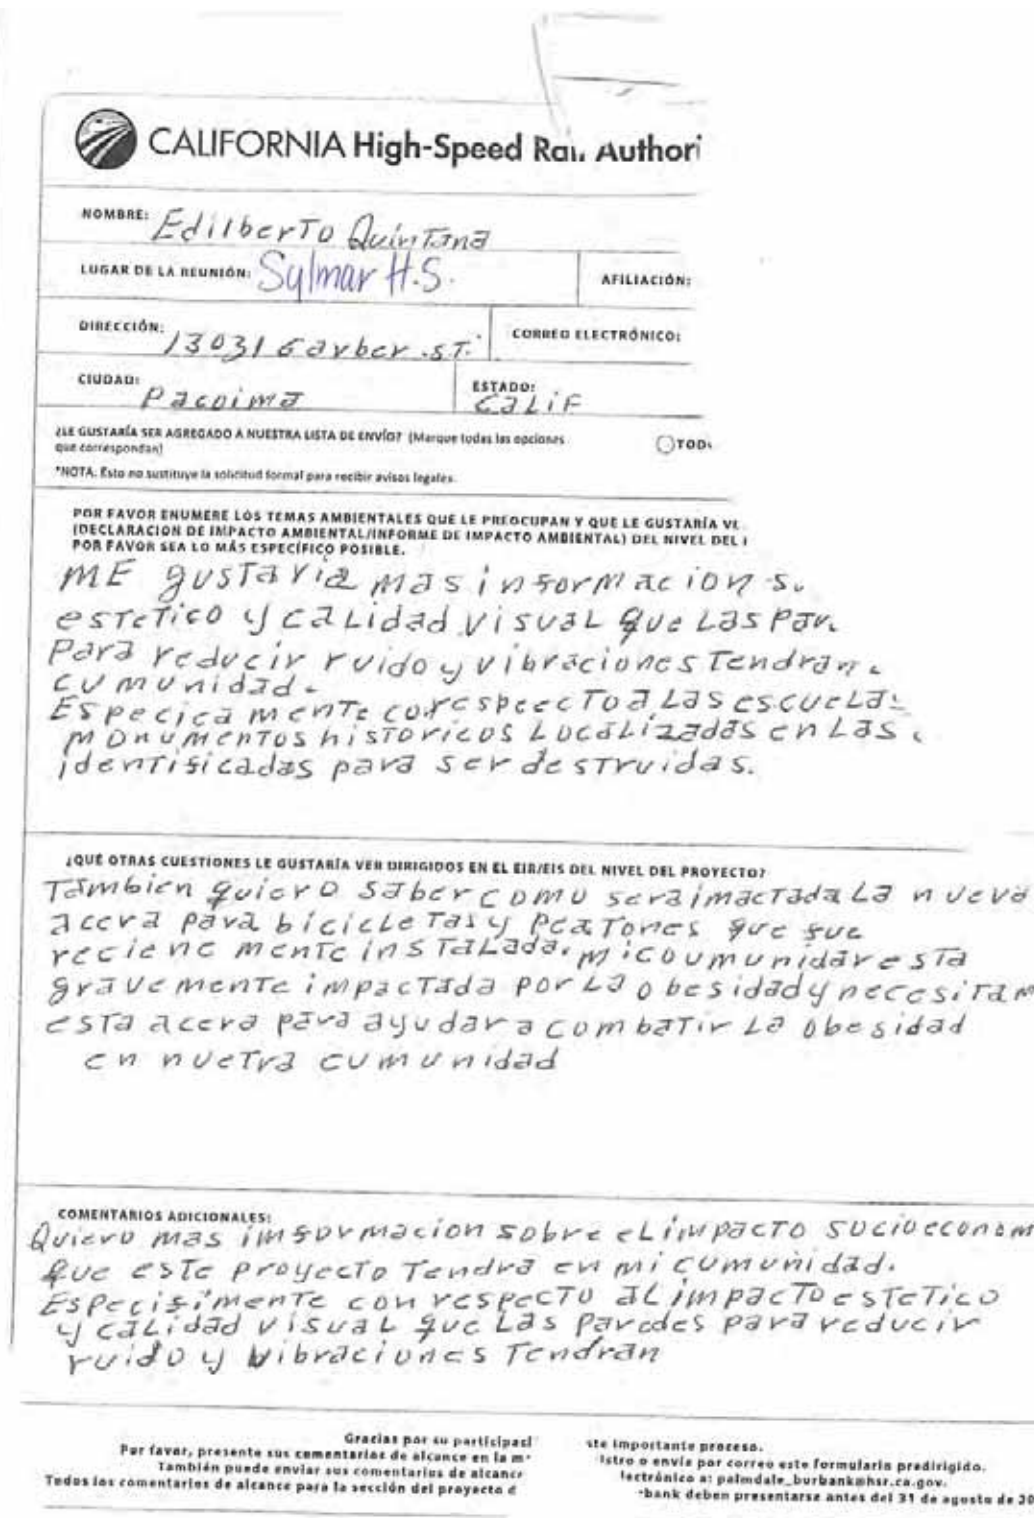 CALIFORNIA High-Speed Rail Authori
NOMBRE: Edilberto Quintana
LUGAR DE LA REUNIÓN: Sylmar H.S. AFILIACIÓN:
DIRECCIÓN: 13031 Garber .ST. CORREO ELECTRÓNICO:
CIUDAD: Pacoima ESTADO: Calif
¿LE GUSTARÍA SER AGREGADO A NUESTRA LISTA DE ENVÍO? (Marque todas las opciones
que correspondan) TOD
*NOTA: Esto no sustituye la solicitud formal para recibir avisos legales.
POR FAVOR ENUMERE LOS TEMAS AMBIENTALES QUE LE PREOCUPAN Y QUE LE GUSTARÍA VE
(DECLARACION DE IMPACTO AMBIENTAL/INFORME DE IMPACTO AMBIENTAL) DEL NIVEL DEL
POR FAVOR SEA LO MÁS ESPECÍFICO POSIBLE.
ME gustaria mas informacion
estetico y calidad visual que las par
Para reducir ruido y vibraciones Tendran
cumunidad.
Especicamente co respecto a las escuelas
monumentos historicos Localizadas en Las
identificadas para ser destruidas.
¿QUÉ OTRAS CUESTIONES LE GUSTARÍA VER DIRIGIDOS EN EL EIR/EIS DEL NIVEL DEL PROYECTO?
Tambien quiero saber como sera imactada La nueva
acera para bicicletas y peatones que fue
recienemente instalada. mi coumunidar esta
gravemente impactada por La obesidad y necesitam
esta acera para ayudar a combatir La obesidad
en nuetra cumunidad
COMENTARIOS ADICIONALES:
Quiero mas imformacion sobre el impacto socioeconom
que este proyecto Tendra en mi cumunidad.
Especifimente con respecto al impacto estetico
y calidad visual que Las paredes para reducir
ruido y vibraciones Tendran
Gracias por su participaci ste importante proceso.
Por favor, presente sus comentarios de alcance en la m istro o envíe por correo este formulario predirigido.
También puede enviar sus comentarios de alcance lectrónico a: palmdale_burbank@hsr.ca.gov.
Todos los comentarios de alcance para la sección del proyecto d bank deben presentarse antes del 31 de agosto de 20